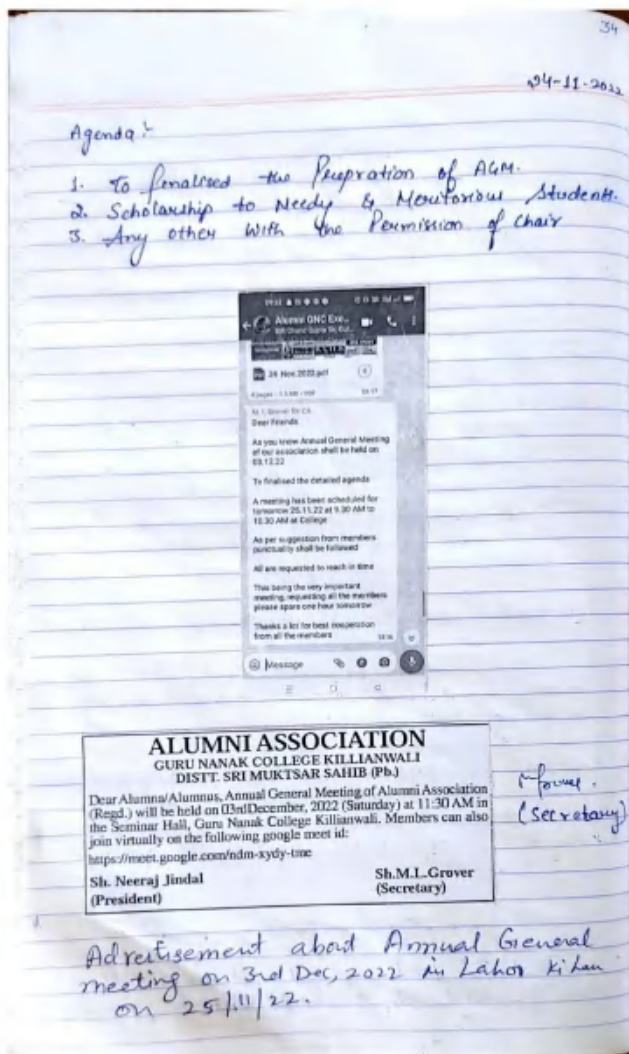 34
24-11-2022
Agenda :-
1. To fenalised the Prepration of AGM.
2. Scholarship to Needy & Meritorious Students.
3. Any other with the Permission of Chair
Alumni GNC Exe...
26 Nov 2022.pdf
Dear Friends
As you know Annual General Meeting
of our association shall be held on
03.12.22
To finalised the detailed agenda
A meeting has been scheduled for
tomorrow 25.11.22 at 9.30 AM to
10.30 AM at College
As per suggestion from members
punctuality shall be followed
All are requested to reach in time
This being the very important
meeting, requesting all the members
please spare one hour tomorrow
Thanks a lot for best cooperation
from all the members
Message
ALUMNI ASSOCIATION
GURU NANAK COLLEGE KILLIANWALI
DISTT. SRI MUKTSAR SAHIB (Pb.)
Dear Alumna/Alumnus, Annual General Meeting of Alumni Association
(Regd.) will be held on 03rdDecember, 2022 (Saturday) at 11:30 AM in
the Seminar Hall, Guru Nanak College Killianwali. Members can also
join virtually on the following google meet id:
https://meet.google.com/ndm-xydy-tme
Sh. Neeraj Jindal
(President)
Sh.M.L.Grover
(Secretary)
(Secretary)
Advertisement about Annual General
meeting on 3rd Dec, 2022 in Lahor
on 25/11/22.